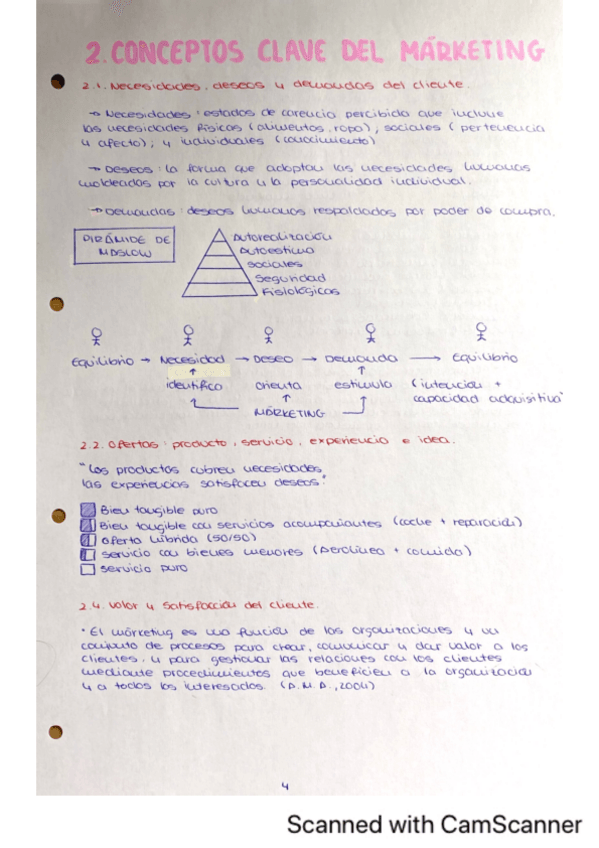 2. CONCEPTOS CLAVE DEL MÁRKETING
2.1. Necesidades, deseos y demandas del cliente.
→ Necesidades: estados de carencia percibida que incluye
las necesidades físicas (alimentos, ropa), sociales (pertenencia
y afecto), y individuales (conocimiento)
→ Deseos: la forma que adoptan las necesidades humanas
moldeadas por la cultura y la personalidad individual.
→ Demandas: deseos humanos respaldados por poder de compra.
PIRÁMIDE DE
MASLOW
Autorealización
Autoestima
Sociales
Seguridad
Fisiológicas
Equilibrio → Necesidad → Deseo → Demanda → Equilibrio
↑ ↑
identifica orienta estimula (intención +
↑ capacidad adquisitiva)
MÁRKETING
2.2. Ofertas: producto, servicio, experiencia e idea.
"Los productos cubren necesidades,
las experiencias satisfacen deseos."
Bien tangible puro
Bien tangible con servicios acompañantes (coche + reparación)
Oferta híbrida (50/50)
Servicio con bienes menores (Aerolínea + comida)
Servicio puro
2.4. Valor y satisfacción del cliente.
· El márketing es una función de las organizaciones y un
conjunto de procesos para crear, comunicar y dar valor a los
clientes, y para gestionar las relaciones con los clientes
mediante procedimientos que beneficien a la organización
y a todos los interesados. (A.M.A., 2004)
4
Scanned with CamScanner